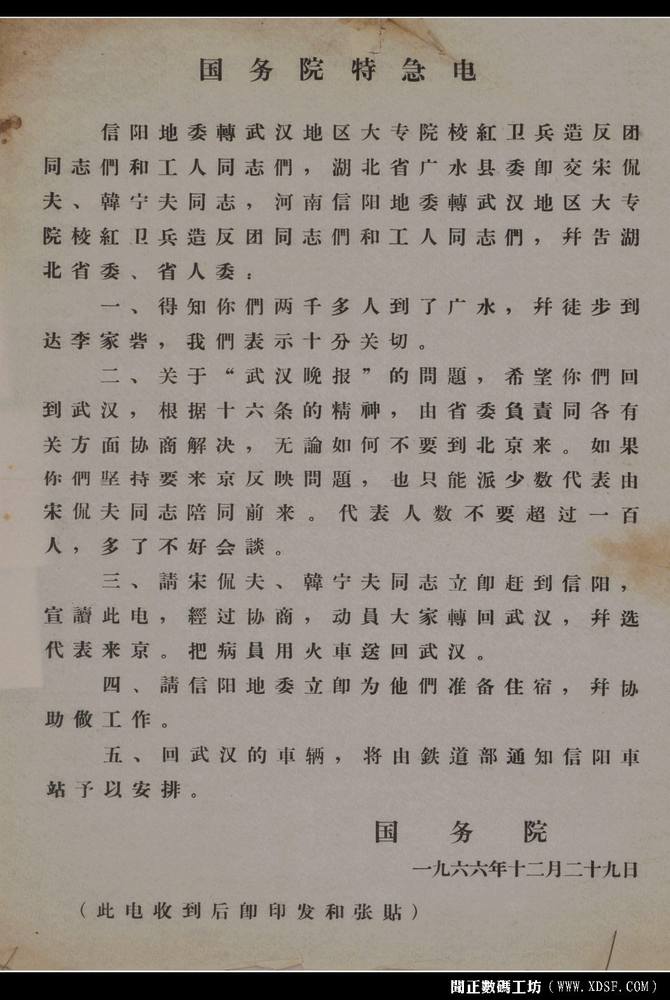 国务院特急电
信阳地委轉武汉地区大专院校紅卫兵造反团
同志們和工人同志們，湖北省广水县委卽交宋侃
夫、韓宁夫同志，河南信阳地委轉武汉地区大专
院校紅卫兵造反团同志們和工人同志們，幷告湖
北省委、省人委：
一、得知你們两千多人到了广水，幷徒步到
达李家砦，我們表示十分关切。
二、关于“武汉晚报”的問題，希望你們回
到武汉，根据十六条的精神，由省委負責同各有
关方面协商解决，无論如何不要到北京来。如果
你們坚持要来京反映問題，也只能派少数代表由
宋侃夫同志陪同前来。代表人数不要超过一百
人，多了不好会談。
三、請宋侃夫、韓宁夫同志立卽赶到信阳，
宣讀此电，經过协商，动員大家轉回武汉，幷选
代表来京。把病員用火車送回武汉。
四、請信阳地委立卽为他們准备住宿，幷协
助做工作。
五、回武汉的車辆，将由鉄道部通知信阳車
站予以安排。
国务院
一九六六年十二月二十九日
（此电收到后卽印发和张貼）
聞正數碼工坊（www.XDSF.com）